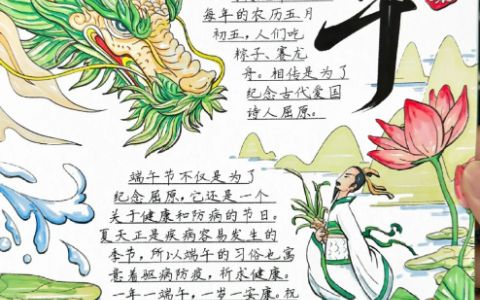 午
每年的农历五月
初五,人们吃
粽子、赛龙
舟。相传是为了
纪念古代爱国
诗人屈原。
端午节不仅是为了
纪念屈原,它还是一个
关于健康和防病的节日。
夏天正是疾病容易发生的
季节,所以端午的习俗也寓
意着驱病防疫,祈求健康。
一年一端午,一岁一安康。祝